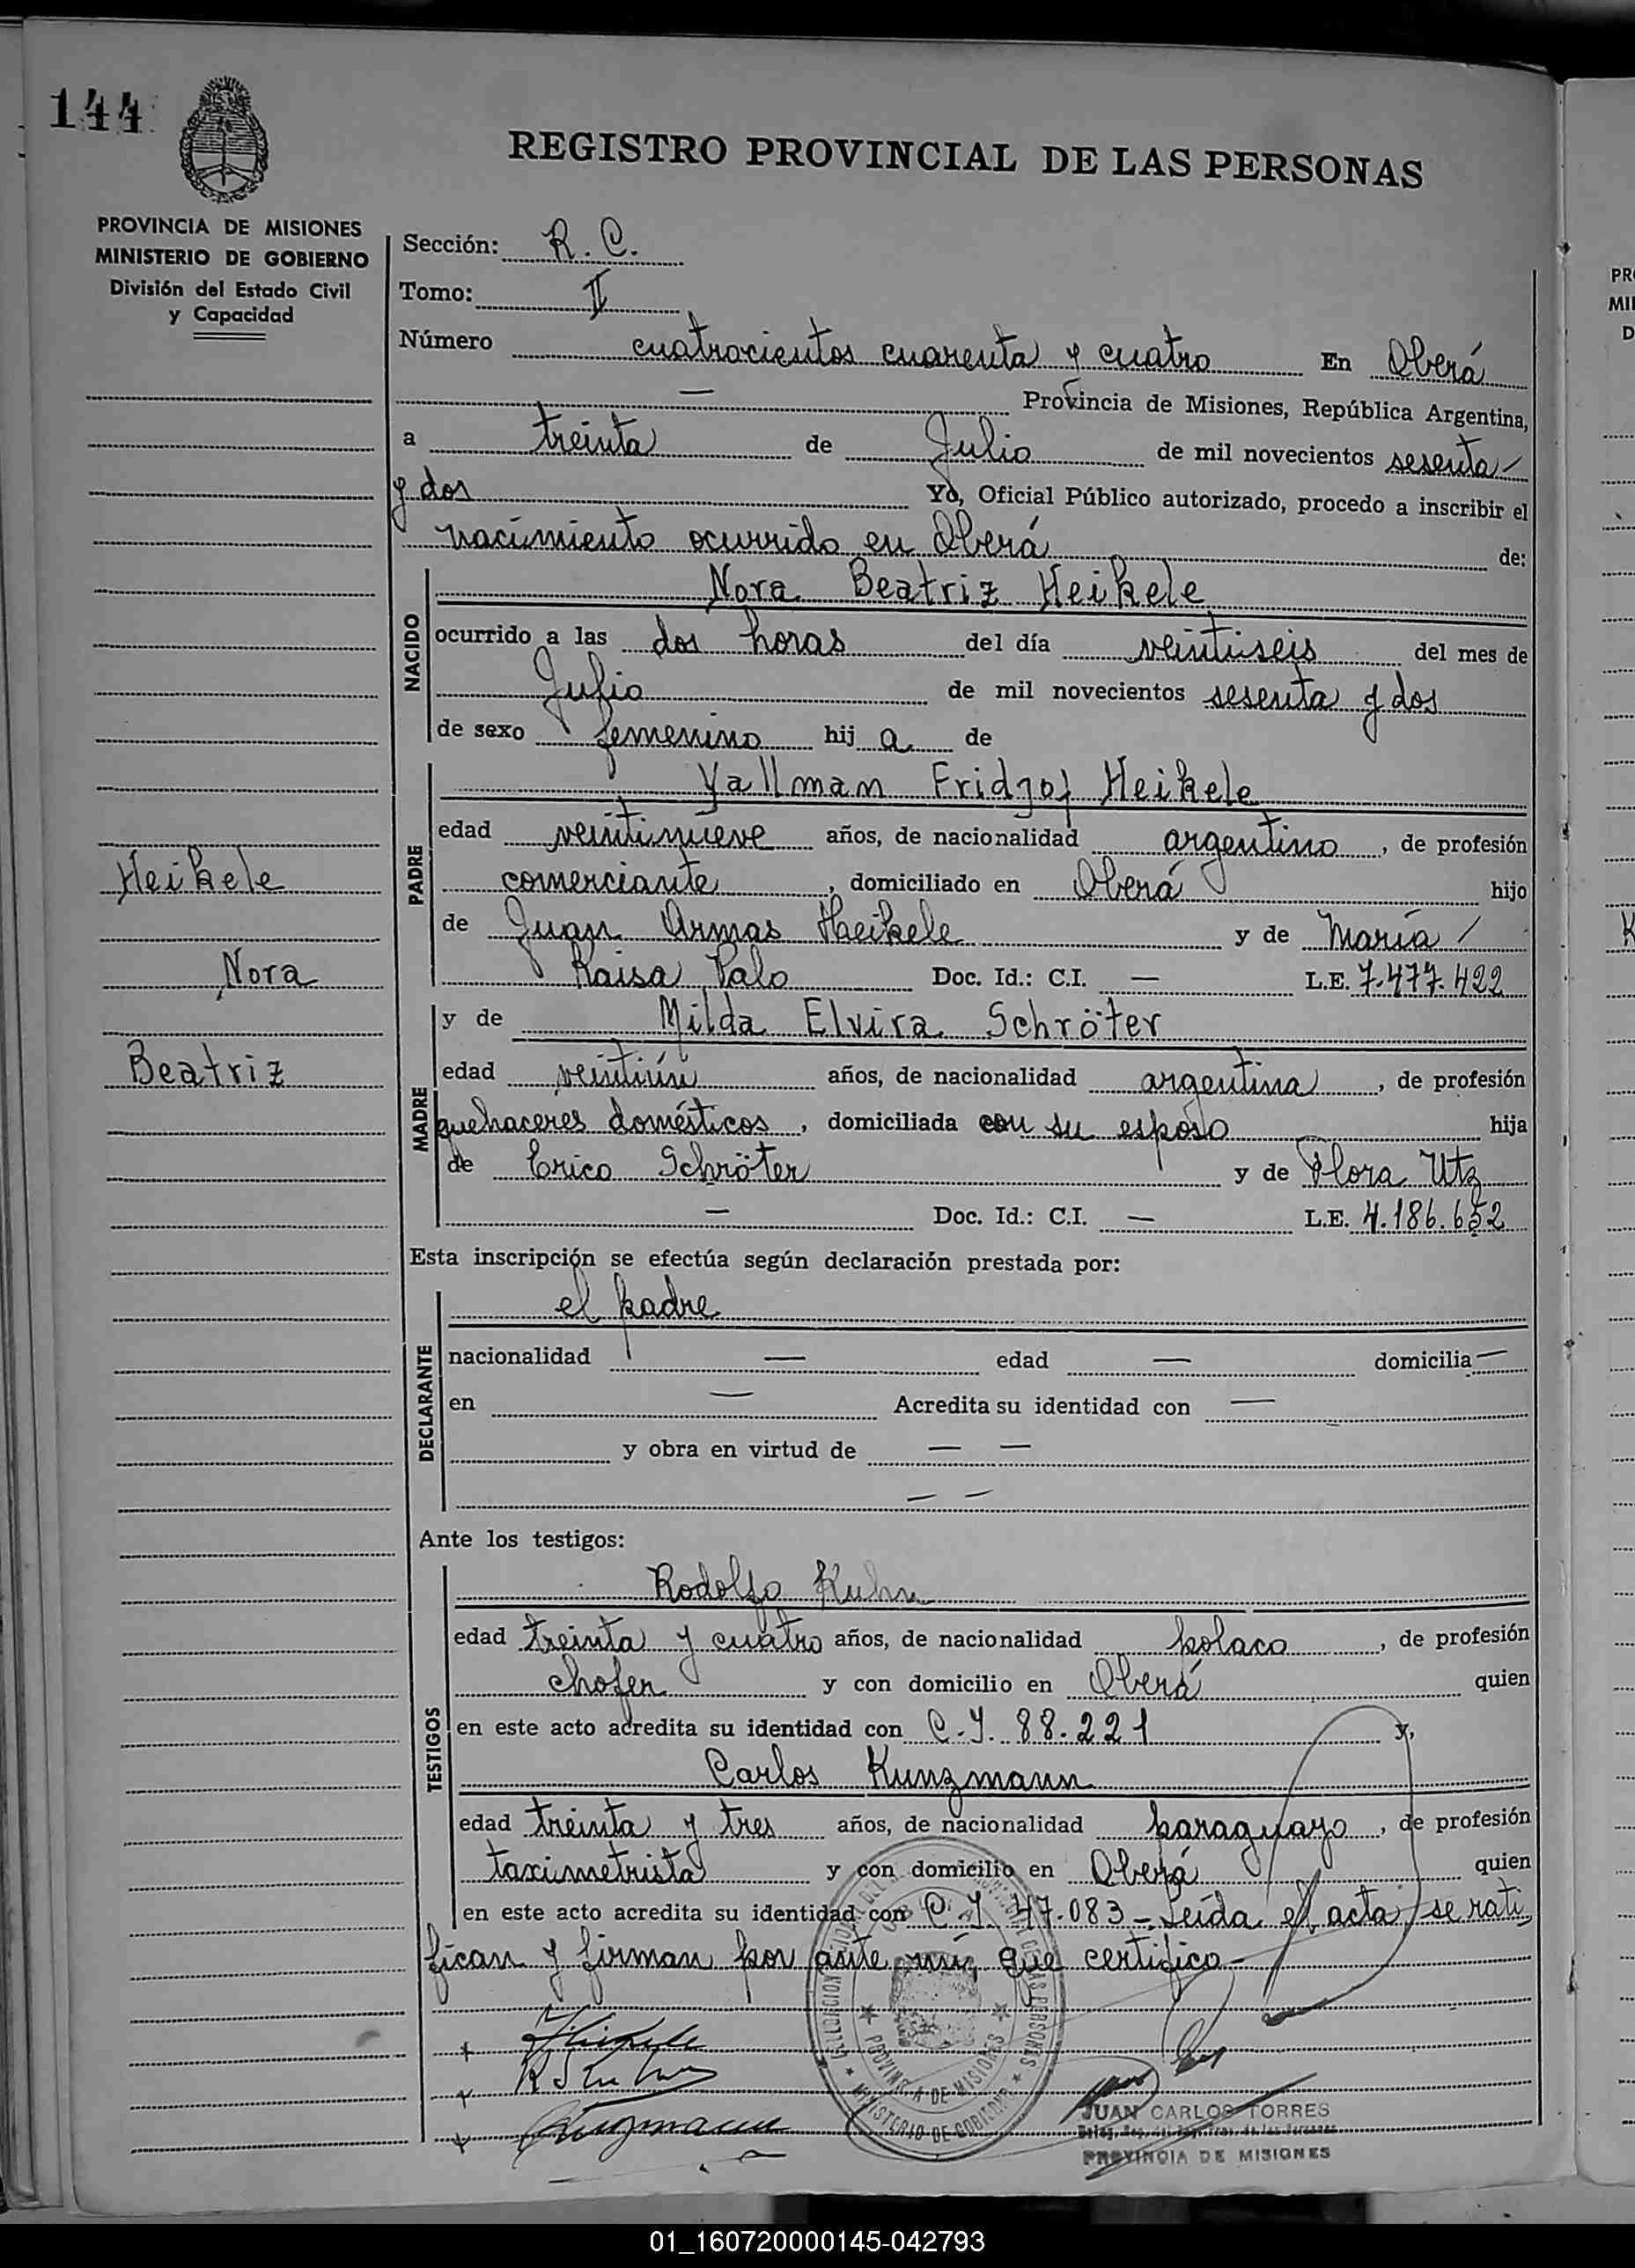 144
REGISTRO PROVINCIAL DE LAS PERSONAS
PROVINCIA DE MISIONES
MINISTERIO DE GOBIERNO
División del Estado Civil
y Capacidad
Sección: R. C.
Tomo: II
Número cuatrocientos cuarenta y cuatro En Oberá
— Provincia de Misiones, República Argentina,
a treinta de Julio de mil novecientos sesenta
y dos Yo, Oficial Público autorizado, procedo a inscribir el
nacimiento ocurrido en Oberá de:
NACIDO
Nora Beatriz Heikele
ocurrido a las dos horas del día veintiseis del mes de
Julio de mil novecientos sesenta y dos
de sexo femenino hija de
PADRE
Yallman Fridjof Heikele
edad veintinueve años, de nacionalidad argentino, de profesión
comerciante, domiciliado en Oberá hijo
de Juan Armas Heikele y de María
Raisa Palo Doc. Id.: C.I. — L.E. 7.477.422
Heikele
Nora
Beatriz
MADRE
y de Milda Elvira Schröter
edad veintiún años, de nacionalidad argentina, de profesión
quehaceres domésticos, domiciliada con su esposo hija
de Erico Schröter y de Flora Utz
— Doc. Id.: C.I. — L.E. 4.186.652
Esta inscripción se efectúa según declaración prestada por:
DECLARANTE
el padre
nacionalidad — edad — domicilia —
en — Acredita su identidad con —
y obra en virtud de — —
— —
Ante los testigos:
TESTIGOS
Rodolfo Kuhn
edad treinta y cuatro años, de nacionalidad polaco, de profesión
chofer y con domicilio en Oberá quien
en este acto acredita su identidad con C.I. 88.221 y,
Carlos Kunzmann
edad treinta y tres años, de nacionalidad paraguayo, de profesión
taximetrista y con domicilio en Oberá quien
en este acto acredita su identidad con C.I. 47.083 -. Leída el acta, se rati
fican y firman por ante mí, que certifico -
Heikele
Kunzmann
PROVINCIA DE MISIONES
MINISTERIO DE GOBIERNO
JUAN CARLOS TORRES
PROVINCIA DE MISIONES
01_160720000145-042793